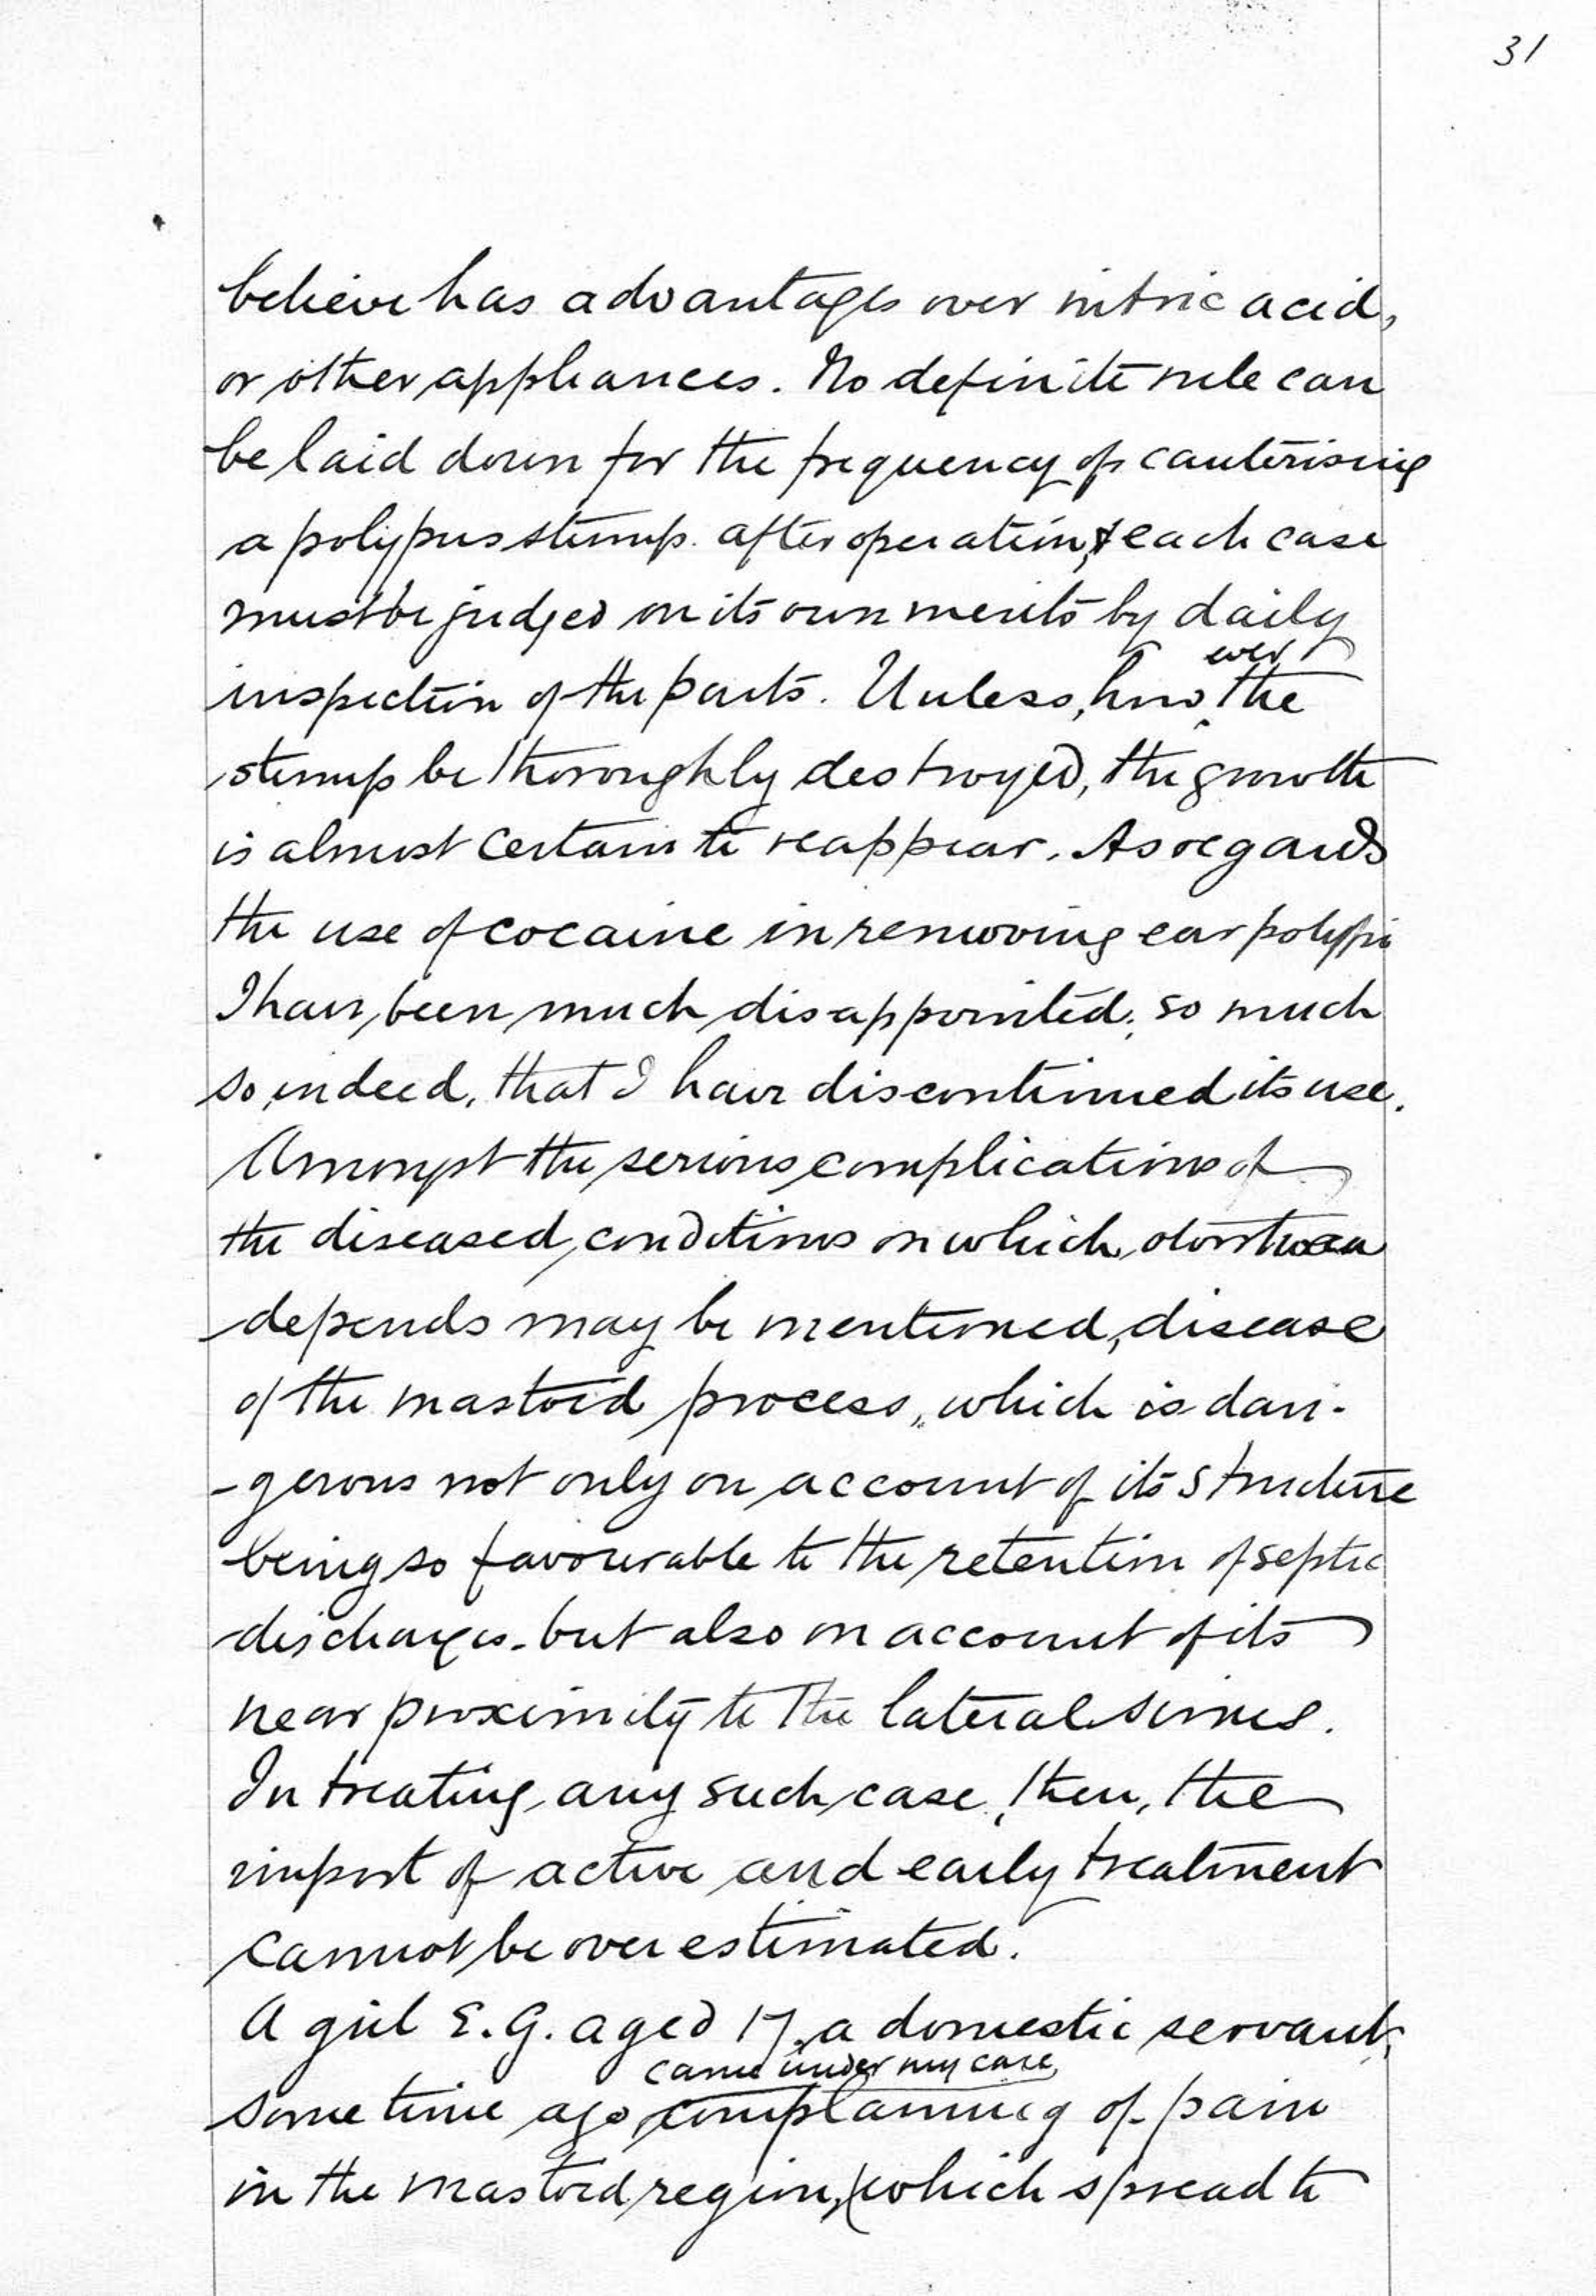 31
believe has advantages over nitric acid,
or other appliances. No definite rule can
be laid down for the frequency of cauterising
a polypus stump after operation, & each case
must be judged on its own merits by daily
ever
inspection of the parts. Unless, how the
stump be thoroughly destroyed, the growth
is almost certain to reappear. As regards
the use of cocaine in removing ear polypi
I have been much disappointed; so much
so, indeed, that I have discontinued its use.
Amongst the serious complications of
the diseased conditions on which otorrhoea
depends may be mentioned, disease
of the mastoid process, which is dan-
-gerous not only on account of its structure
being so favourable to the retention of septic
discharges - but also on account of its
near proximity to the lateral sinus.
In treating any such case, then, the
import of active and early treatment
cannot be over estimated.
A girl E. G. aged 17, a domestic servant,
came under my care,
some time ago complaining of pain
in the mastoid region, which spread to